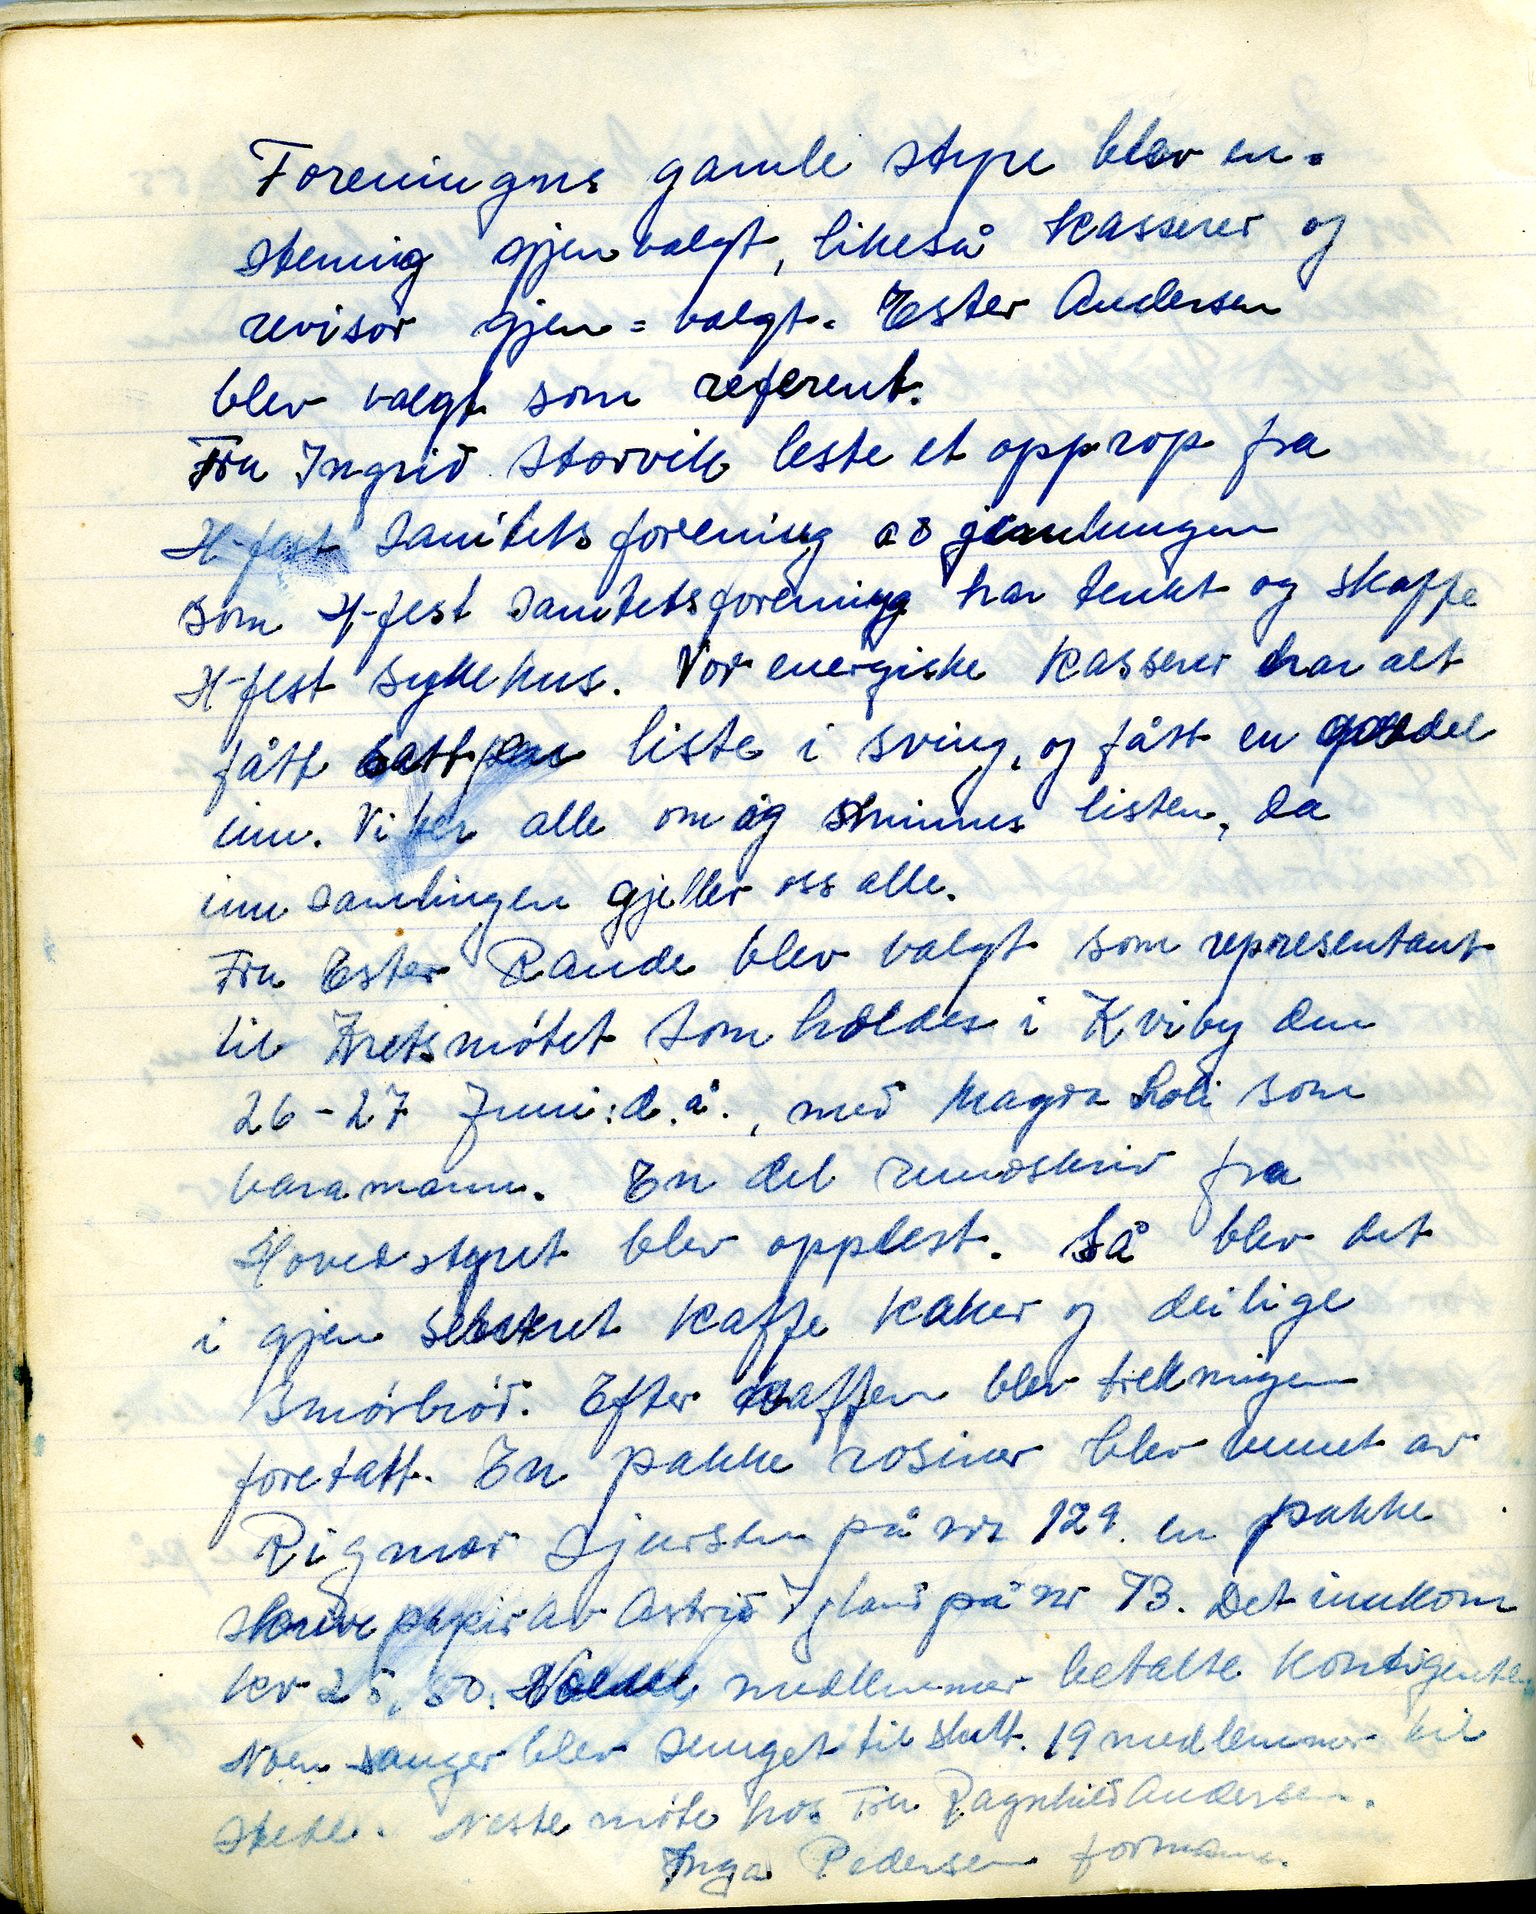 Foreningens gamle styre blev en-
stemig gjenvalgt, likeså kasserer og
revisor gjen=valgt. Ester Andersen
blev valgt som referent.
Fru Ingrid Storvik leste et opprop fra
H-fest Sanitetsforening
som H-fest Sanitetsforening har tenkt og skaffe
H-fest sykehus. Vor energiske kasserer har alt
fått satt en liste i sving, og fått en god del
inn. Vi ber alle om og minnes listen, da
innsamlingen gjeller oss alle.
Fru Ester Rande blev valgt som representant
til Åretsmøtet som holdes i Kviby den
26-27 Juni: d.å., med Magda som
varamann. En del rundskriv fra
Hovedstyret blev opplest. Så blev det
i gjen servert kaffe kaker og deilige
Smørbrød. Efter kaffen blev trekningen
foretatt. En pakke rosiner blev vunnet av
Rigmor på nr 129. en pakke
skrivepapir av Astrid Igland på nr 73. Det innkom
kr 25,50. medlemmer betalte kontigenten
Noen sanger blev sunget til slutt. 19 medlemmer til
stede. Neste møte hos Fru Ragnhild Andersen.
Inga Pedersen formann.